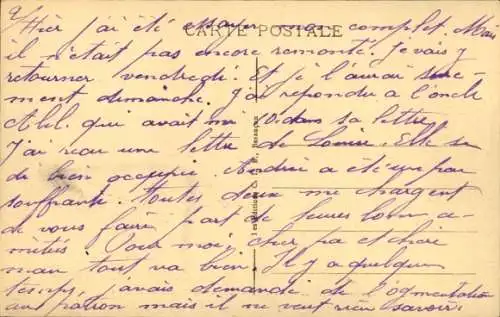 CARTE POSTALE
Hier j'ai été essayer mon complet. Mais
il n'était pas encore remonté. Je vais y
retourner vendredi. Et je l'aurai sure-
ment dimanche. J'ai repondu a l'oncle
Abel. qui avait mi dans sa lettre
J'ai reçu une lettre de Louise. Elle se
dé bien occupée. Andrée a été un peu
souffrante. toutes deux me chargent
de vous faire part de leures bonn a-
mitiés. Pour moi, cher pa et chère
man tout va bien. Il y a quelque
temps, j'avais demandé de l'ogmentation
au patron mais il ne veut rien savoir.